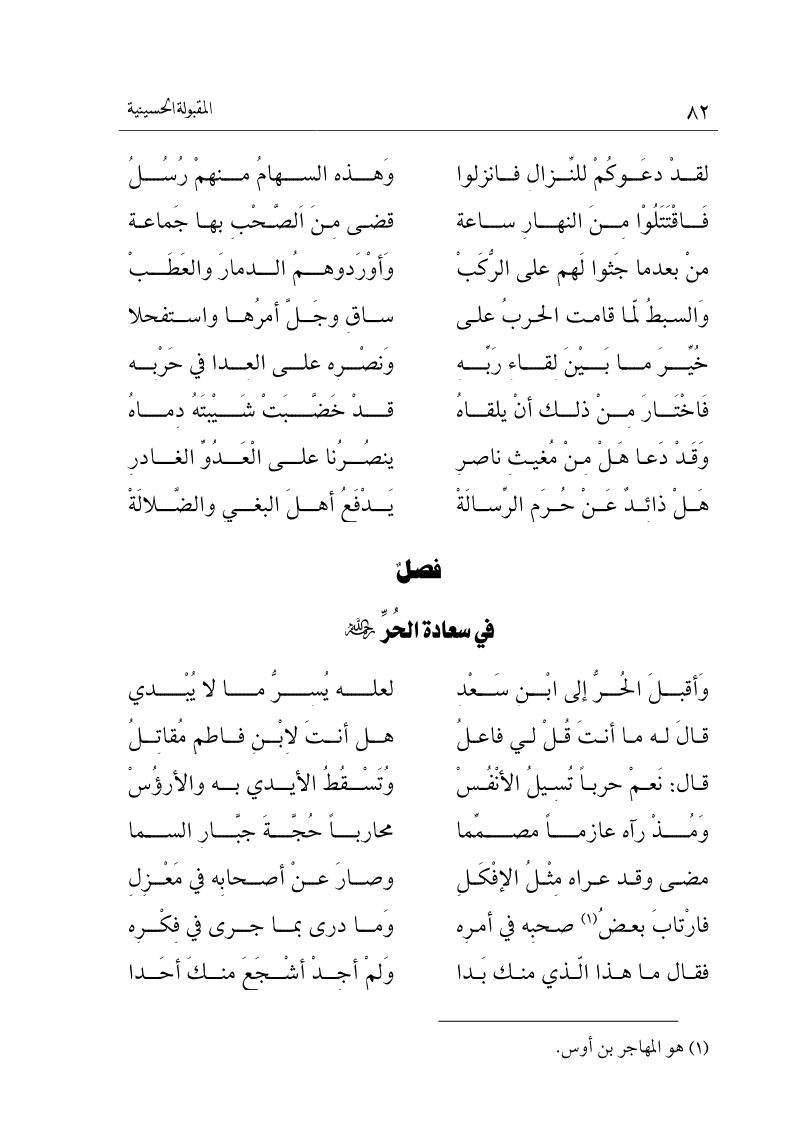 ٨٢ المقبولة الحسينية
لقدْ دعَوكُمْ للنِّزال فانزلوا وَهذه السهامُ منهمْ رُسُلُ
فَاقْتَتَلُوْا منَ النهار ساعة قضى منَ اَلصَّحْبِ بها جَماعة
منْ بعدما جَثوا لَهم على الرُّكَبْ وَأوْرَدوهمُ الدمارَ والعَطَبْ
وَالسبطُ لمّا قامت الحربُ على ساق وجَلَّ أمرُها واستفحلا
خُيِّرَ ما بَيْنَ لقاء رَبِّه وَنصْره على العدا في حَرْبه
فَاخْتَارَ منْ ذلك أنْ يلقاهُ قدْ خَضَّبَتْ شَيْبتَهُ دماهُ
وَقَدْ دَعا هَلْ مِنْ مُغيث ناصرِ ينصُرُنا على الْعَدُوِّ الغادرِ
هَلْ ذائدٌ عَنْ حُرَمِ الرِّسالَةْ يَدْفَعُ أهلَ البغي والضَّلالَةْ
فصلٌ
في سعادة الحُرِّ رحمه الله
وَأقبلَ الحُرُّ إلى ابْنِ سَعْدِ لعله يُسرُّ ما لا يُبْدي
قالَ له ما أنتَ قُلْ لي فاعلُ هل أنتَ لابْنِ فاطم مُقاتلُ
قال: نَعمْ حرباً تُسيلُ الأنْفُسْ وُتَسْقُطُ الأيدي به والأرؤُسْ
وَمُذْ رآه عازماً مصمِّما محارباً حُجَّةَ جبَّارِ السما
مضى وقد عراه مثْلُ الإفْكَلِ وصارَ عنْ أصحابه في مَعْزلِ
فارْتابَ بعضُ(١) صحبه في أمرِه وَما درى بما جرى في فكْرِه
فقال ما هذا الّذي منك بَدا وَلمْ أجدْ أشْجَعَ منكَ أحَدا
(١) هو المهاجر بن أوس.